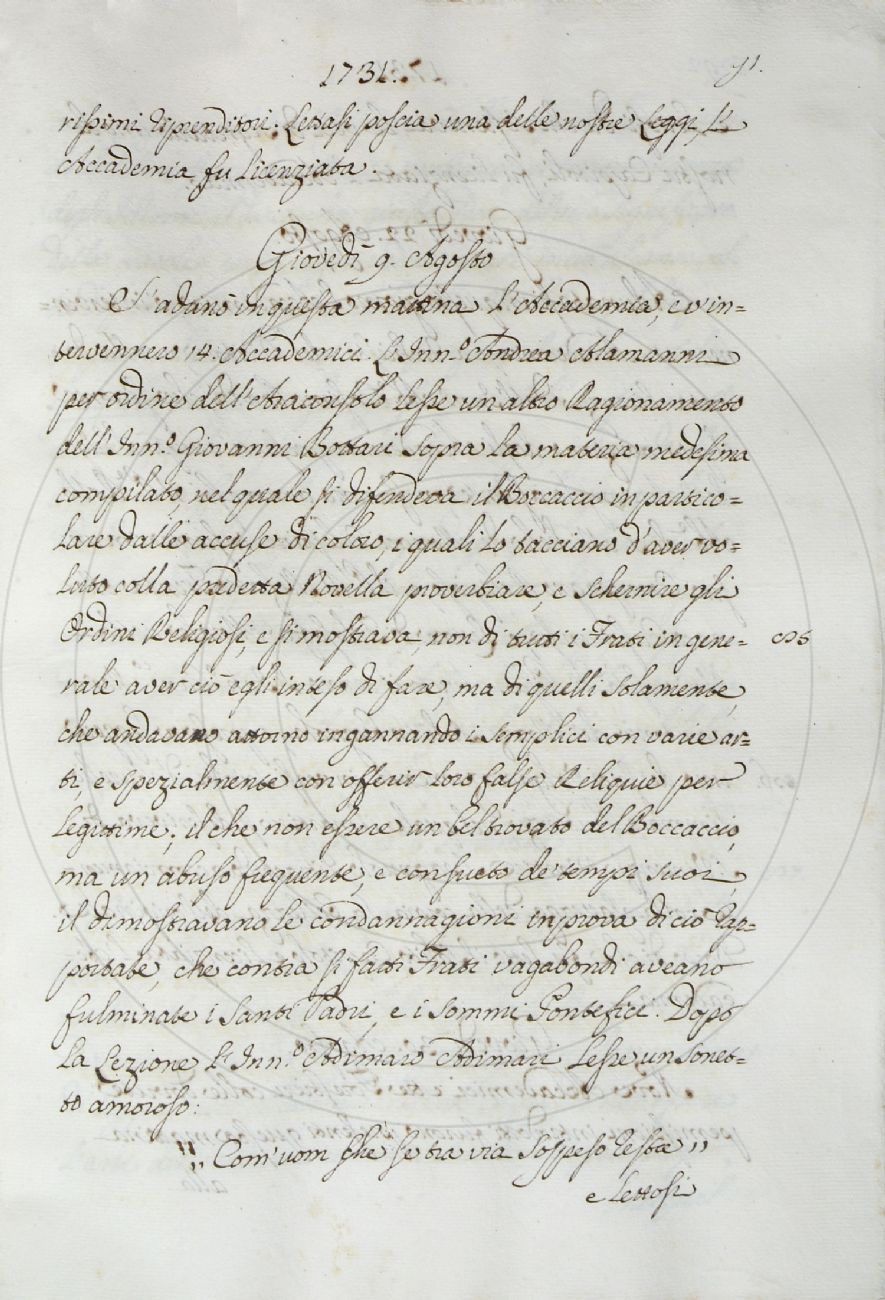 1731. 91.
rissimi riprenditori. Lettasi poscia una delle nostre Leggi, L'
Accademia fu Licenziata.
Giovedì 9. Agosto
S'adunò in questa mattina L'Accademia, e v'in=
tervennero 14. Accademici. L'Inn.º Andrea Alamanni
per ordine dell'Arciconsolo lesse un altro Ragionamento
dell'Inn.º Giovanni Bottari sopra la materia medesima
compilato, nel quale si difendeva il Boccaccio in partico=
lare dalle accuse di coloro, i quali lo tacciano d'aver vo=
luto colla predetta Novella proverbiare, e schernire gli
Ordini Religiosi, e si mostrava, non di tutti i Frati in gene=
rale aver ciò egli inteso di fare, ma di quelli solamente,
che andavano attorno ingannando i semplici con varie ar=
ti, e spezialmente con offerir loro false Reliquie per
legittime; il che non essere un bel trovato del Boccaccio,
ma un abuso frequente, e consueto de' tempi suoi,
il dimostravano le condannagioni in prova di ciò rap=
portate, che contra sì fatti Frati vagabondi aveano
fulminate i Santi Padri, e i Sommi Pontefici. Dopo
la Lezione L'Inn.º Adimaro Adimari lesse un sonet=
to amoroso:
"Com'uom che se tra via sospeso resta"
e Lettosi